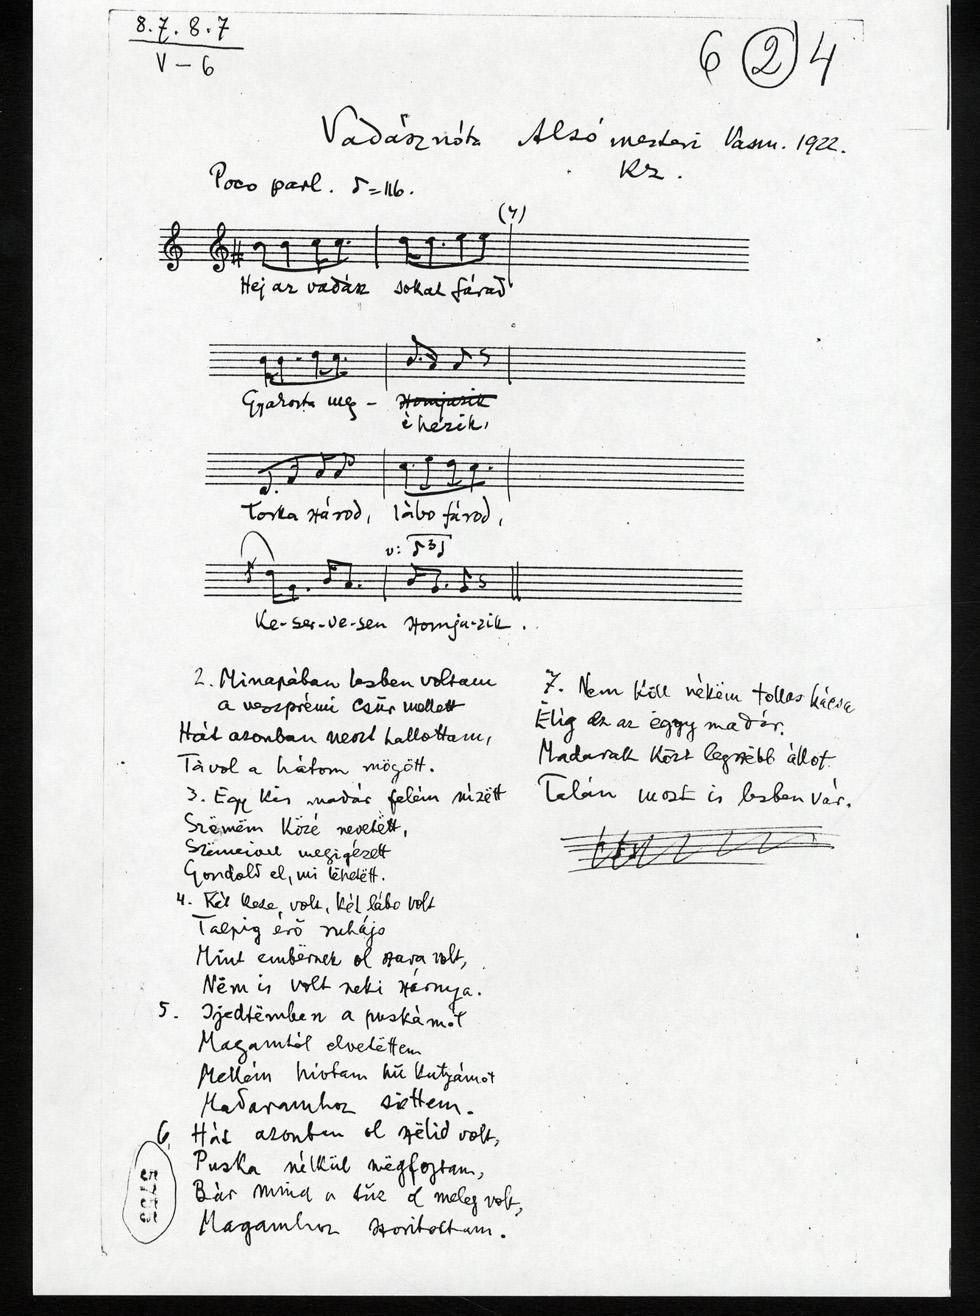 8.7.8.7
V – 6
6 2 4
Vadásznóta Alsó mesteri Vasm. 1922.
Kz.
Poco parl. ♪=116.
(4)
Hej az vadász sokat fárad
Gyakorta meg – szomjazik
éhezik,
Torka szárod, lábo fárod,
v: 3
Ke-ser-ve-sen szomja-zik.
2. Minapában lesben voltam
a veszprémi csűr mellett
Hát azonban neszt hallottam,
Távol a hátom mögött.
3. Egy kis madár felém nízëtt
Szëmëm közé nevetëtt,
Szëmeivel megigézëtt
Gondold el, mi lëhetëtt.
4. Két keze volt, két lábo volt
Talpig érő ruhájo
Mint embërnek ol szava volt,
Nëm is volt neki szárnya.
5. Ijedtëmben a puskámot
Magamtól elvetëttem
Mellém hívtam hű kutyámot
Madaramhoz siettem.
6. Hát azonban ol szëlid volt,
Puska nélkül mëgfogtam,
Bár mind a tűz ol meleg volt,
Magamhoz szorítottam.
7. Nem köll nékëm tollas kácsa
Élig ez az ëggy madár.
Madarak közt legszëbb állot
Talán most is lesben vár.
5753